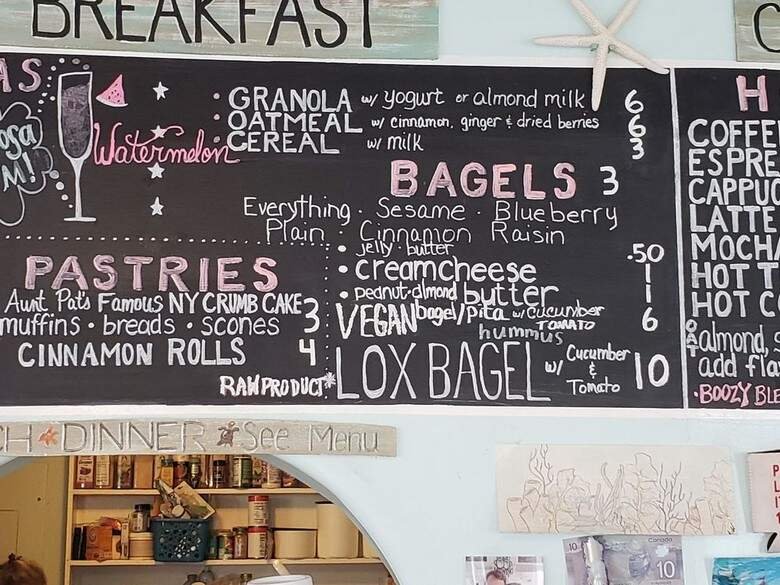 BREAKFAST
AS
Watermelon
M!
GRANOLA w/ yogurt or almond milk 6
OATMEAL w/ cinnamon, ginger & dried berries 6
CEREAL w/ milk 3
BAGELS 3
Everything · Sesame · Blueberry
Plain · Cinnamon Raisin
• jelly · butter .50
• creamcheese 1
• peanut·almond butter 1
VEGAN bagel/pita w/ cucumber TOMATO hummus 6
LOX BAGEL w/ Cucumber & Tomato 10
PASTRIES
Aunt Pat's Famous NY CRUMB CAKE
muffins · breads · scones 3
CINNAMON ROLLS 4
RAW PRODUCT*
H
COFFE
ESPRE
CAPPUC
LATTE
MOCHA
HOT T
HOT C
OAT almond, s
add fla
·BOOZY BLE
CH DINNER See Menu
10
Canada
10